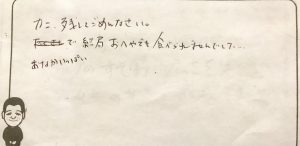 カニ、残してごめんなさい。
で 結局 おへやでも 食べられませんでした…
おなかいっぱい